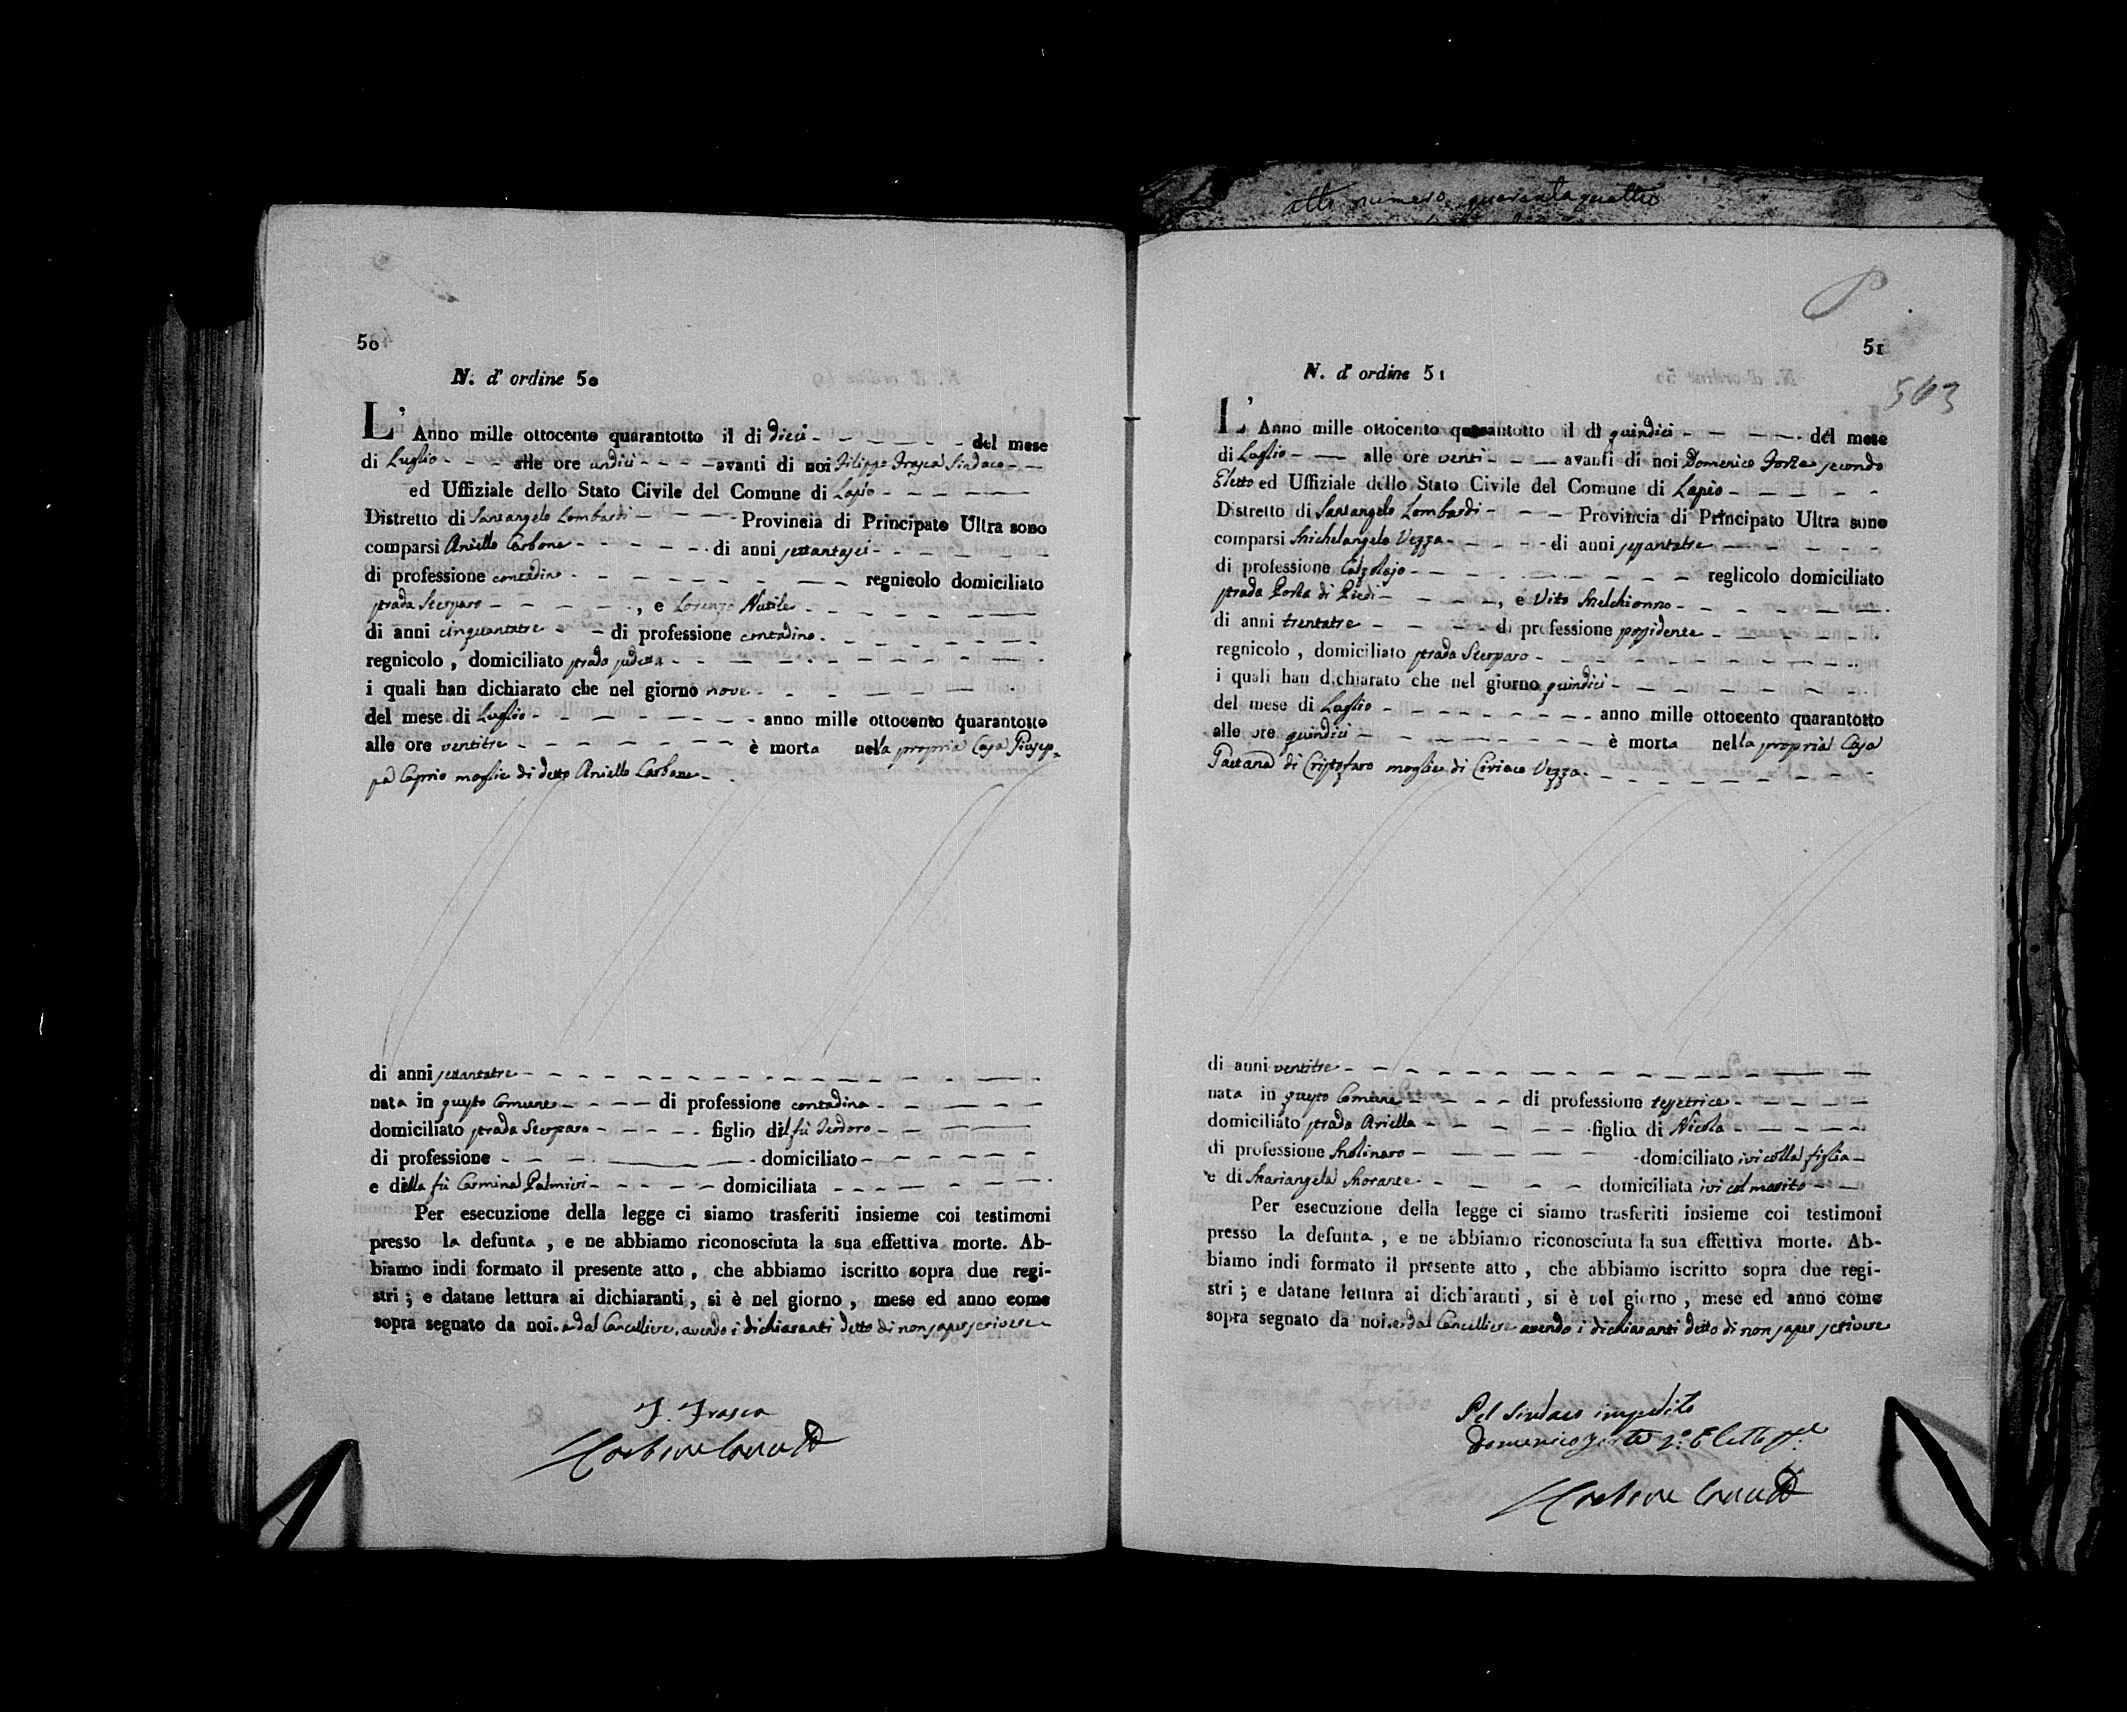 50
N. d' ordine 50
L' Anno mille ottocento quarantotto il di dieci del mese
di Luglio alle ore undici avanti di noi Filippo Frasca Sindaco
ed Uffiziale dello Stato Civile del Comune di Lapio
Distretto di Santangelo Lombardi Provincia di Principato Ultra sono
comparsi Aniello Carbone di anni settantasei
di professione contadino regnicolo domiciliato
strada Sterparo , e Lorenzo Nutile
di anni cinquantatre di professione contadino
regnicolo , domiciliato strada
i quali han dichiarato che nel giorno nove
del mese di Luglio anno mille ottocento quarantotto
alle ore ventitre è morta nella propria Casa Giusep-
pa Caprio moglie di detto Aniello Carbone
di anni settantatre
nata in questo Comune di professione contadina
domiciliato strada Sterparo figlio del fù Teodoro
di professione domiciliato
e della fù Carmina Palmieri domiciliata
Per esecuzione della legge ci siamo trasferiti insieme coi testimoni
presso la defunta , e ne abbiamo riconosciuta la sua effettiva morte. Ab-
biamo indi formato il presente atto , che abbiamo iscritto sopra due regi-
stri ; e datane lettura ai dichiaranti , si è nel giorno , mese ed anno come
sopra segnato da noi. e dal Cancelliere, avendo i dichiaranti detto di non saper scrivere
F. Frasca
atto numero quarantaquattro
51
503
N. d' ordine 51
L' Anno mille ottocento quarantotto il dì quindici del mese
di Luglio alle ore venti avanti di noi Domenico Forte secondo
Eletto ed Uffiziale dello Stato Civile del Comune di Lapio
Distretto di Santangelo Lombardi Provincia di Principato Ultra sono
comparsi Michelangelo Vezza di anni sessantatre
di professione Calzolajo reglicolo domiciliato
strada Porta di Piedi , e Vito Melchionno
di anni trentatre di professione possidente
regnicolo , domiciliato strada Sterparo
i quali han dichiarato che nel giorno quindici
del mese di Luglio anno mille ottocento quarantotto
alle ore quindici è morta nella propria Casa
Gaetana di Cristofaro moglie di Ciriaco Vezza
di anni ventitre
nata in questo Comune di professione tessitrice
domiciliato strada Ariella figlia di Nicola
di professione Molinaro domiciliato ivi colla figlia
e di Mariangela Morante domiciliata ivi col marito
Per esecuzione della legge ci siamo trasferiti insieme coi testimoni
presso la defunta , e ne abbiamo riconosciuta la sua effettiva morte. Ab-
biamo indi formato il presente atto , che abbiamo iscritto sopra due regi-
stri ; e datane lettura ai dichiaranti , si è nel giorno , mese ed anno come
sopra segnato da noi. e dal Cancelliere avendo i dichiaranti detto di non saper scrivere
Pel Sindaco impedito
Domenico Forte 2.° Eletto